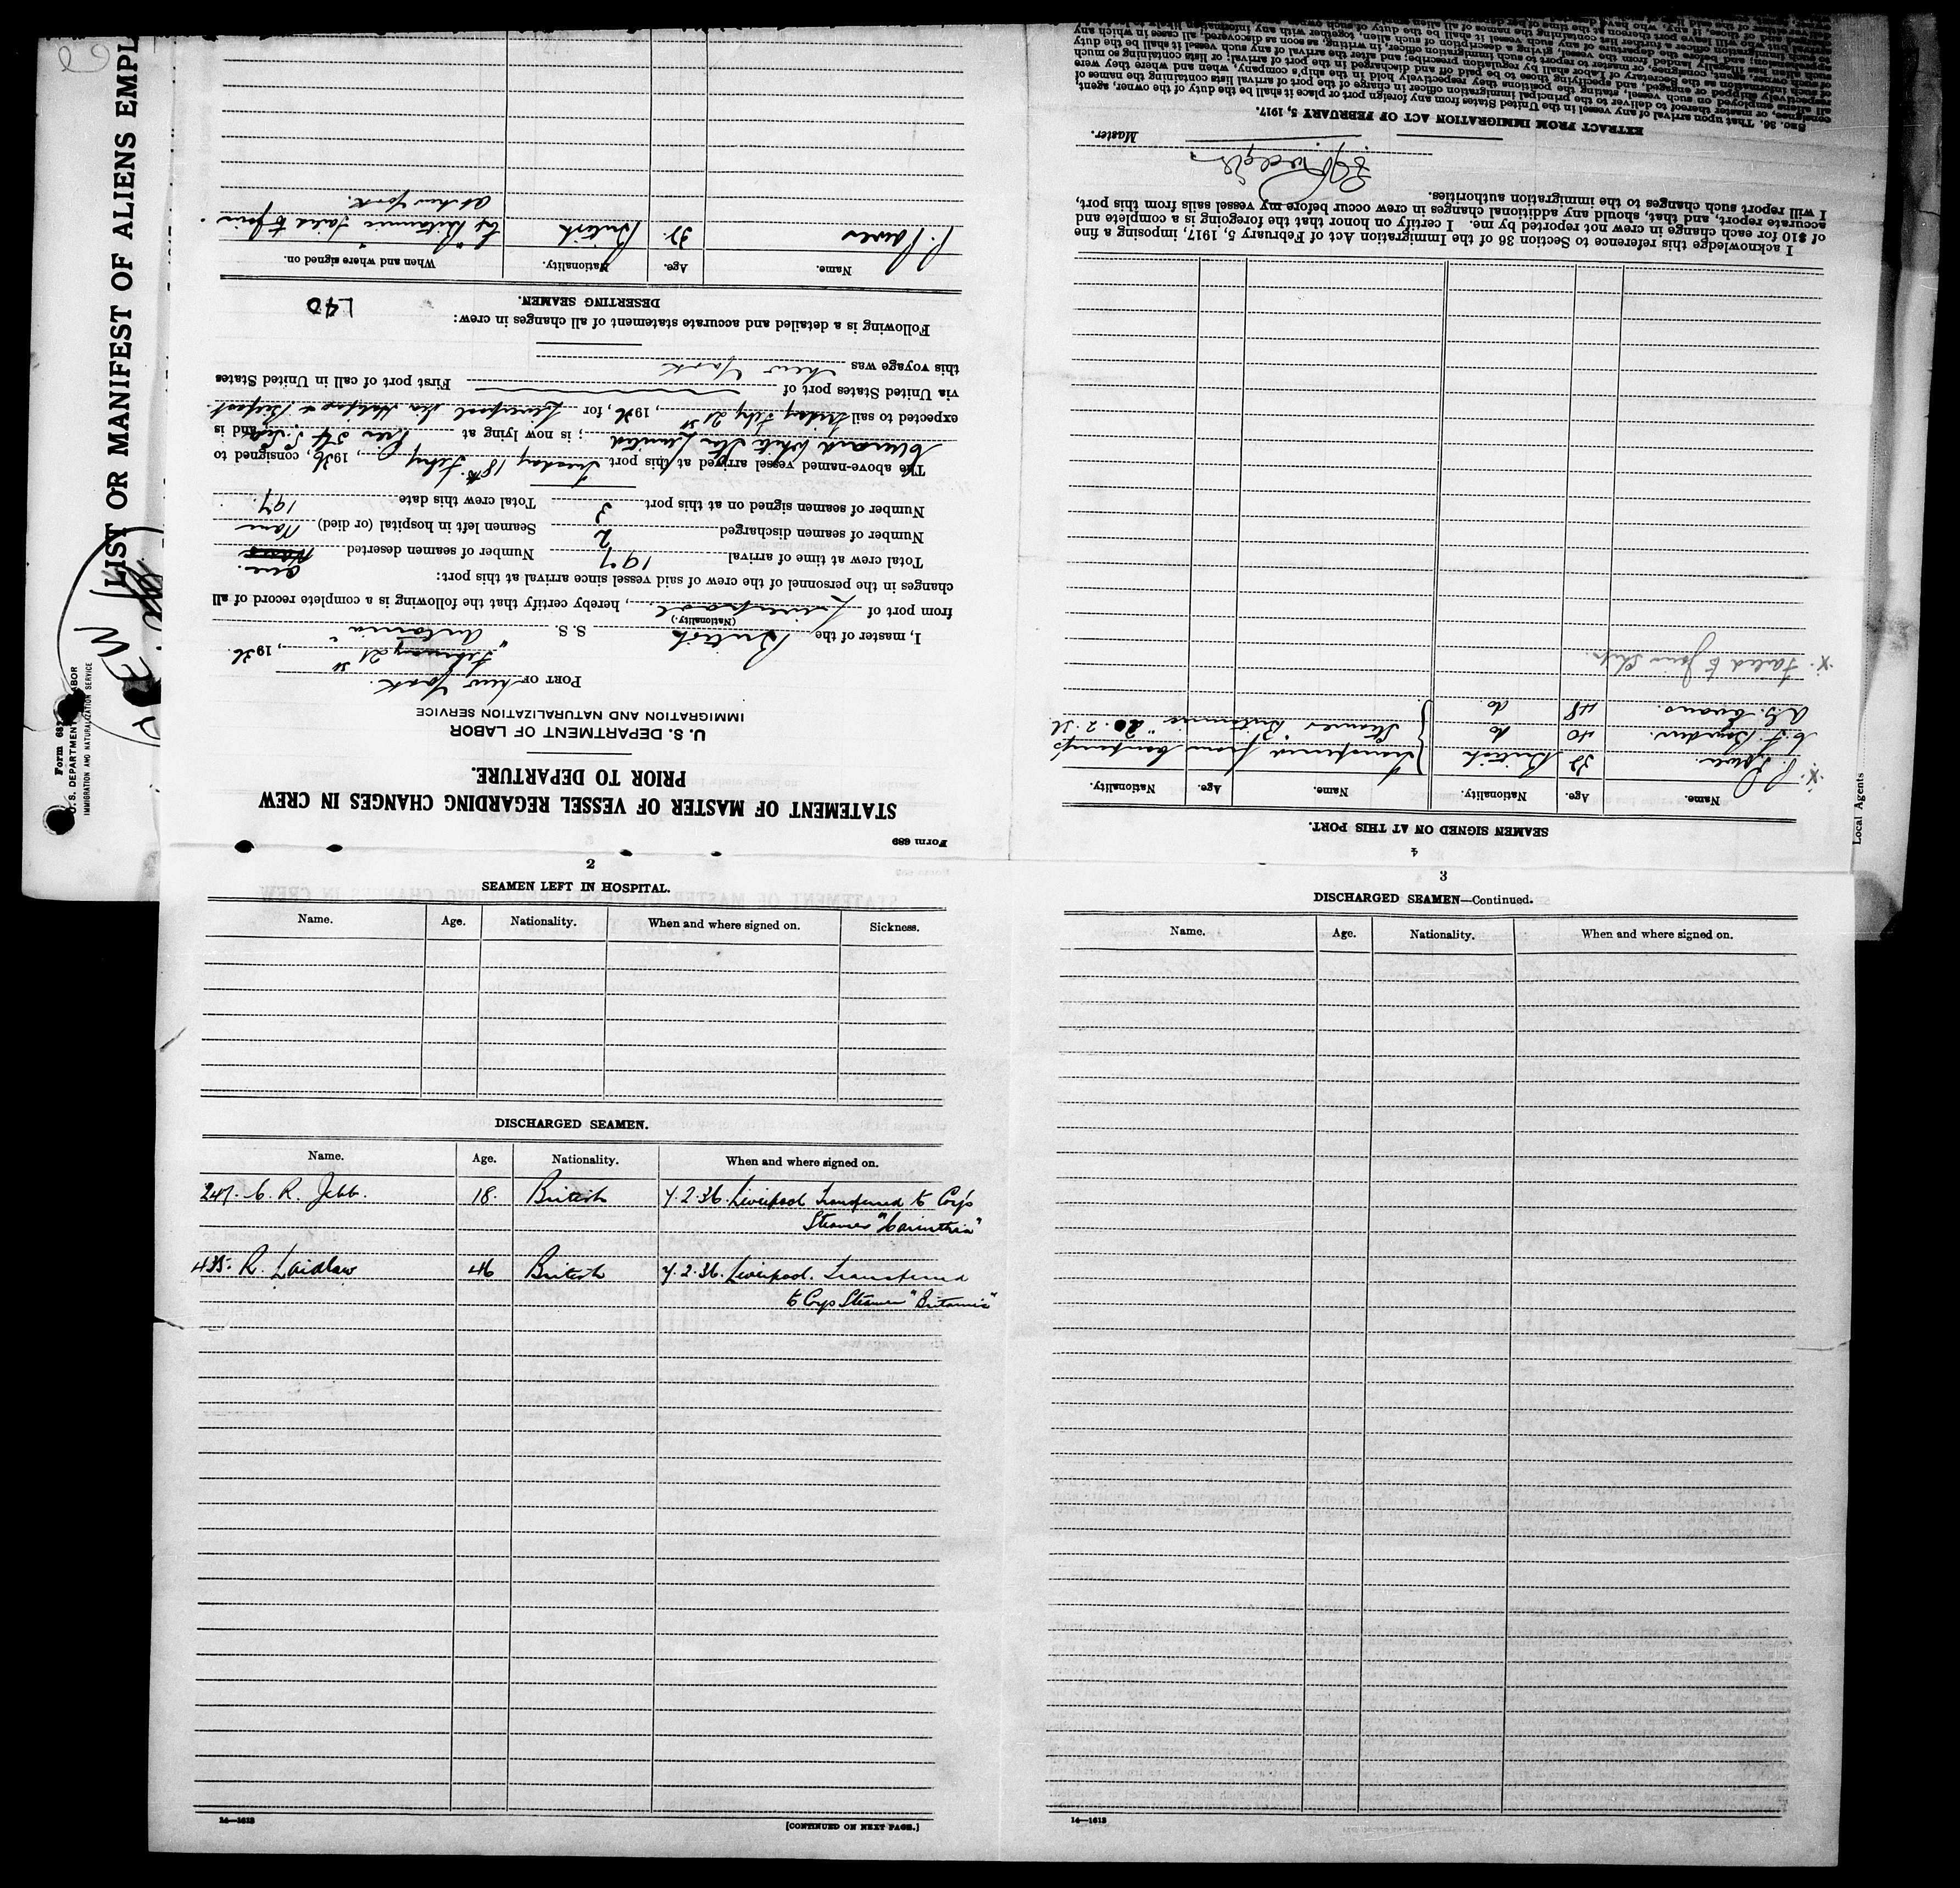 LIST OR MANIFEST OF ALIENS EMPL
Form 689
STATEMENT OF MASTER OF VESSEL REGARDING CHANGES IN CREW
PRIOR TO DEPARTURE.
U. S. DEPARTMENT OF LABOR
IMMIGRATION AND NATURALIZATION SERVICE
PORT OF New York.
February 21st, 1936.
I, master of the British S. S. "Antonia"
(Nationality.)
from port of Liverpool, hereby certify that the following is a complete record of all
changes in the personnel of the crew of said vessel since arrival at this port:
Total crew at time of arrival 197 Number of seamen deserted None One.
Number of seamen discharged 2 Seamen left in hospital (or died) None
Number of seamen signed on at this port 3 Total crew this date 197.
The above-named vessel arrived at this port Tuesday 18th Feby, 1936, consigned to
Cunard White Star Limited; is now lying at Pier 54, and is
expected to sail Friday Feby 21st, 1936, for Liverpool via Halifax & Belfast.
via United States port of First port of call in United States
this voyage was New York
Following is a detailed and accurate statement of all changes in crew:
L40
DESERTING SEAMEN.
Name. Age. Nationality. When and where signed on.
British Ex "Britannic" Failed to join
at New York.
2
SEAMEN LEFT IN HOSPITAL.
Name. Age. Nationality. When and where signed on. Sickness.
DISCHARGED SEAMEN.
Name. Age. Nationality. When and where signed on.
247. C. R. Jebb. 18. British 7.2.36. Liverpool Transferred to Coy's
Steamer "Carinthia"
435. R. Laidlaw 46 British 7.2.36. Liverpool. Transferred
to Coys Steamer "Britannic"
14—1613
[CONTINUED ON NEXT PAGE.]
3
DISCHARGED SEAMEN—Continued.
Name. Age. Nationality. When and where signed on.
14—1613
4
SEAMEN SIGNED ON AT THIS PORT.
Name. Age. Nationality. Name. Age. Nationality.
x. British Transferred from Company's
40 do Steamer "Britannic" 20.2.36
A.G. Evans. 48 do.
x. Failed to join Ship
I acknowledge this reference to Section 36 of the Immigration Act of February 5, 1917, imposing a fine
of $10 for each change in crew not reported by me. I certify on honor that the foregoing is a complete and
accurate report, and that, should any additional changes in crew occur before my vessel sails from this port,
I will report such changes to the immigration authorities.
Master.
EXTRACT FROM IMMIGRATION ACT OF FEBRUARY 5, 1917.
SEC. 36. That upon arrival of any vessel in the United States from any foreign port or place it shall be the duty of the owner, agent,
consignee, or master thereof to deliver to the principal immigration officer in charge of the port of arrival lists containing the names of
all aliens employed on such vessel, stating the positions they respectively hold in the ship's company, when and where they were
respectively shipped or engaged, and specifying those to be paid off and discharged in the port of arrival; or lists containing so much
of such information as the Secretary of Labor shall by regulation prescribe; and after the arrival of any such vessel it shall be the duty
of such owner, agent, consignee, or master to report to such immigration officer, in writing, as soon as discovered, all cases in which any
Local Agents
IMMIGRATION AND NATURALIZATION SERVICE